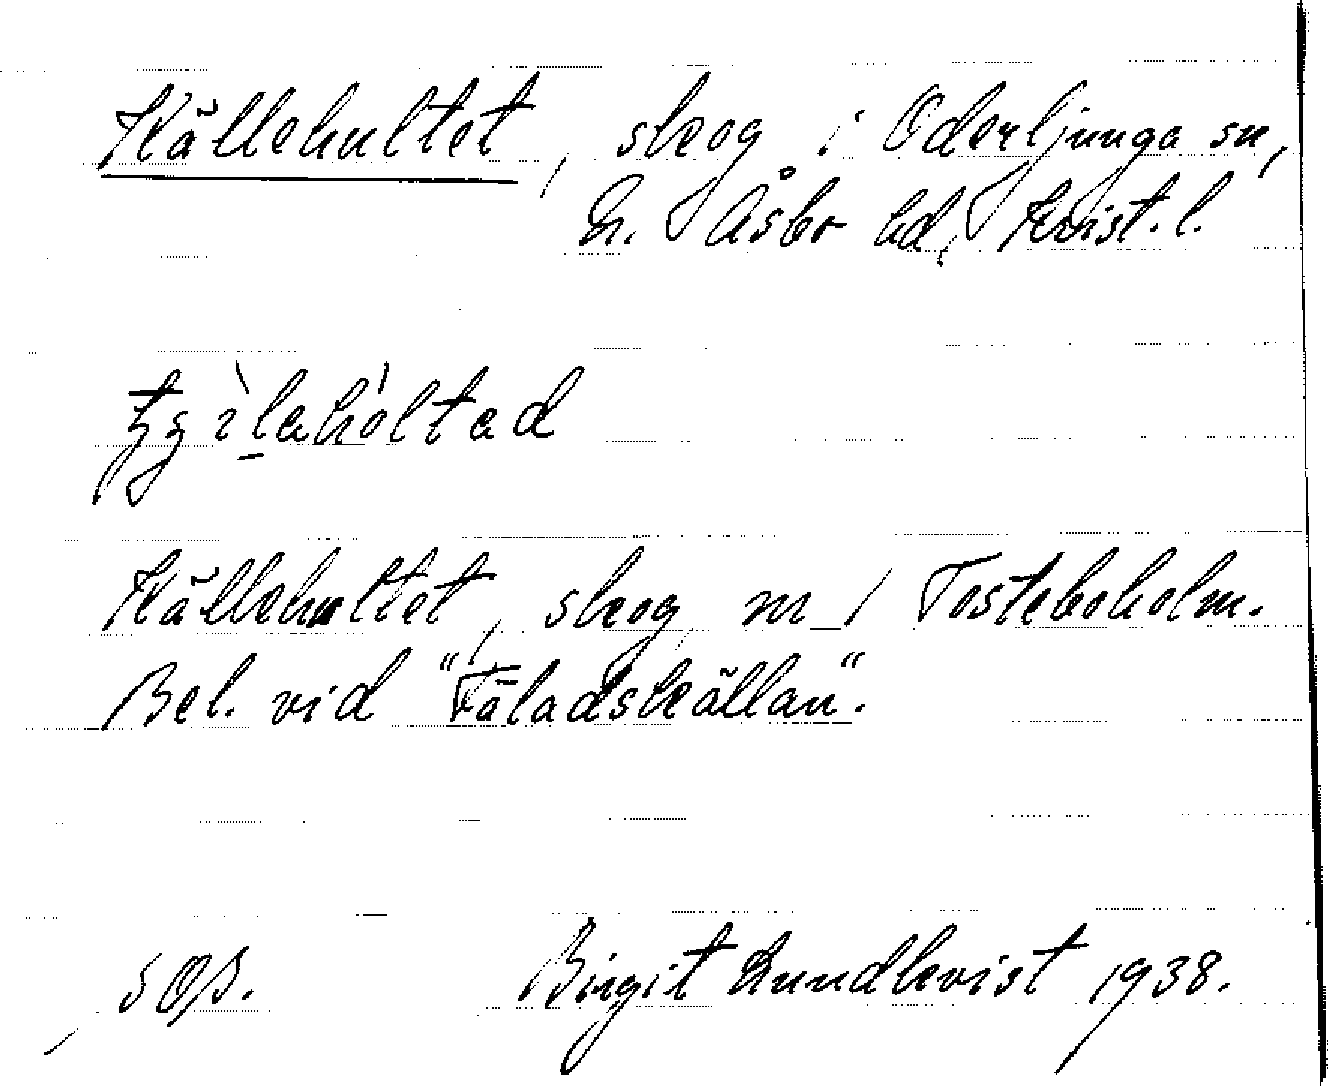 Källehultet, skog i Oderljunga sn,
N. Åsbo hd, Krist. l.
Källehultet, skog m / Tosteboholm.
Bel. vid "Fäladskällan".
SOS. Birgit Lundkvist 1938.